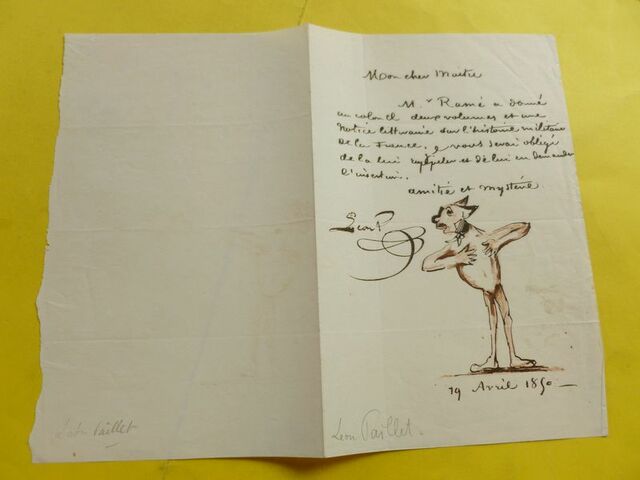 Mon cher Maitre
M.r Ramé a donné
au colonel deux volumes et une
Notice litteraire sur l'histoire militaire
de la France. je vous serai obligé
de la lui rappeler et de lui en demander
l'insertion.
amitié et mystère.
Léon P
19 Avril 1850
Léon Paillet
Léon Paillet.